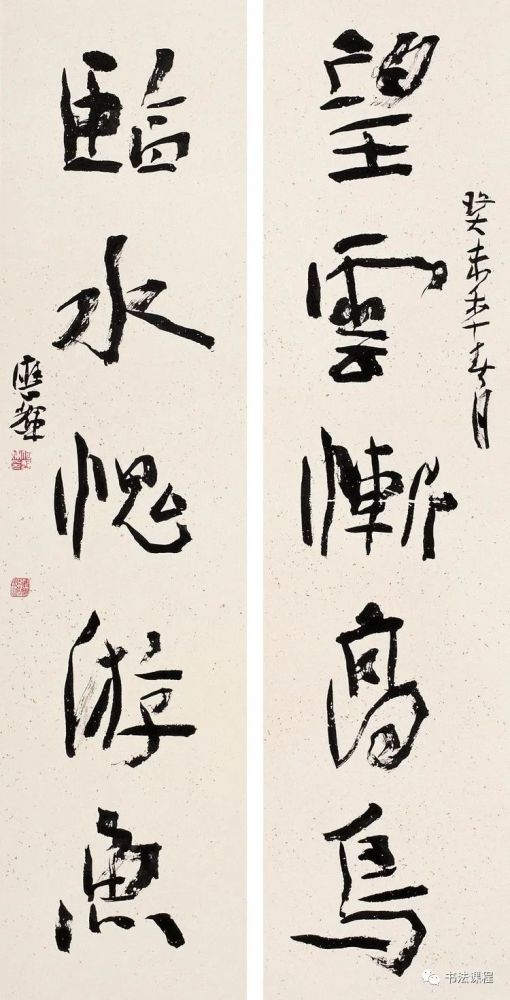 癸未年春月
望雲慚高鳥
臨水愧游魚
應輝
书法课程